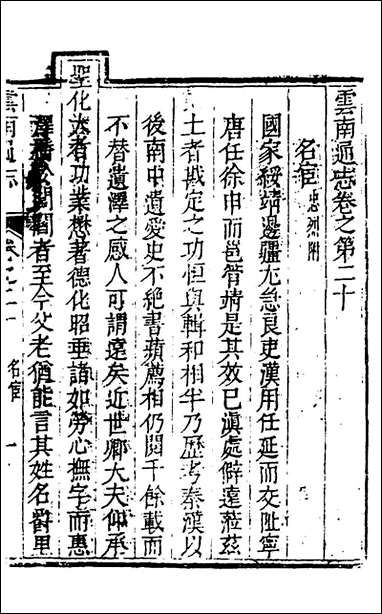 雲南通志卷之第二十
名宦 忠烈附
國家綏靖邊疆尤急良吏漢用任延而交阯寧
唐任徐申而邕管靖是其效已滇處僻遠蒞茲
土者戡定之功恒與輯和相半乃歷考秦漢以
後南中遺愛史不絕書蘋薦相仍閱千餘載而
不替遺澤之感人可謂遠矣近世卿大夫仰承
聖化大者功業懋著德化昭垂諸如勞心撫字而惠
澤播於閭閻者至今父老猶能言其姓名爵里
雲南通志
卷之二十
名宦
一